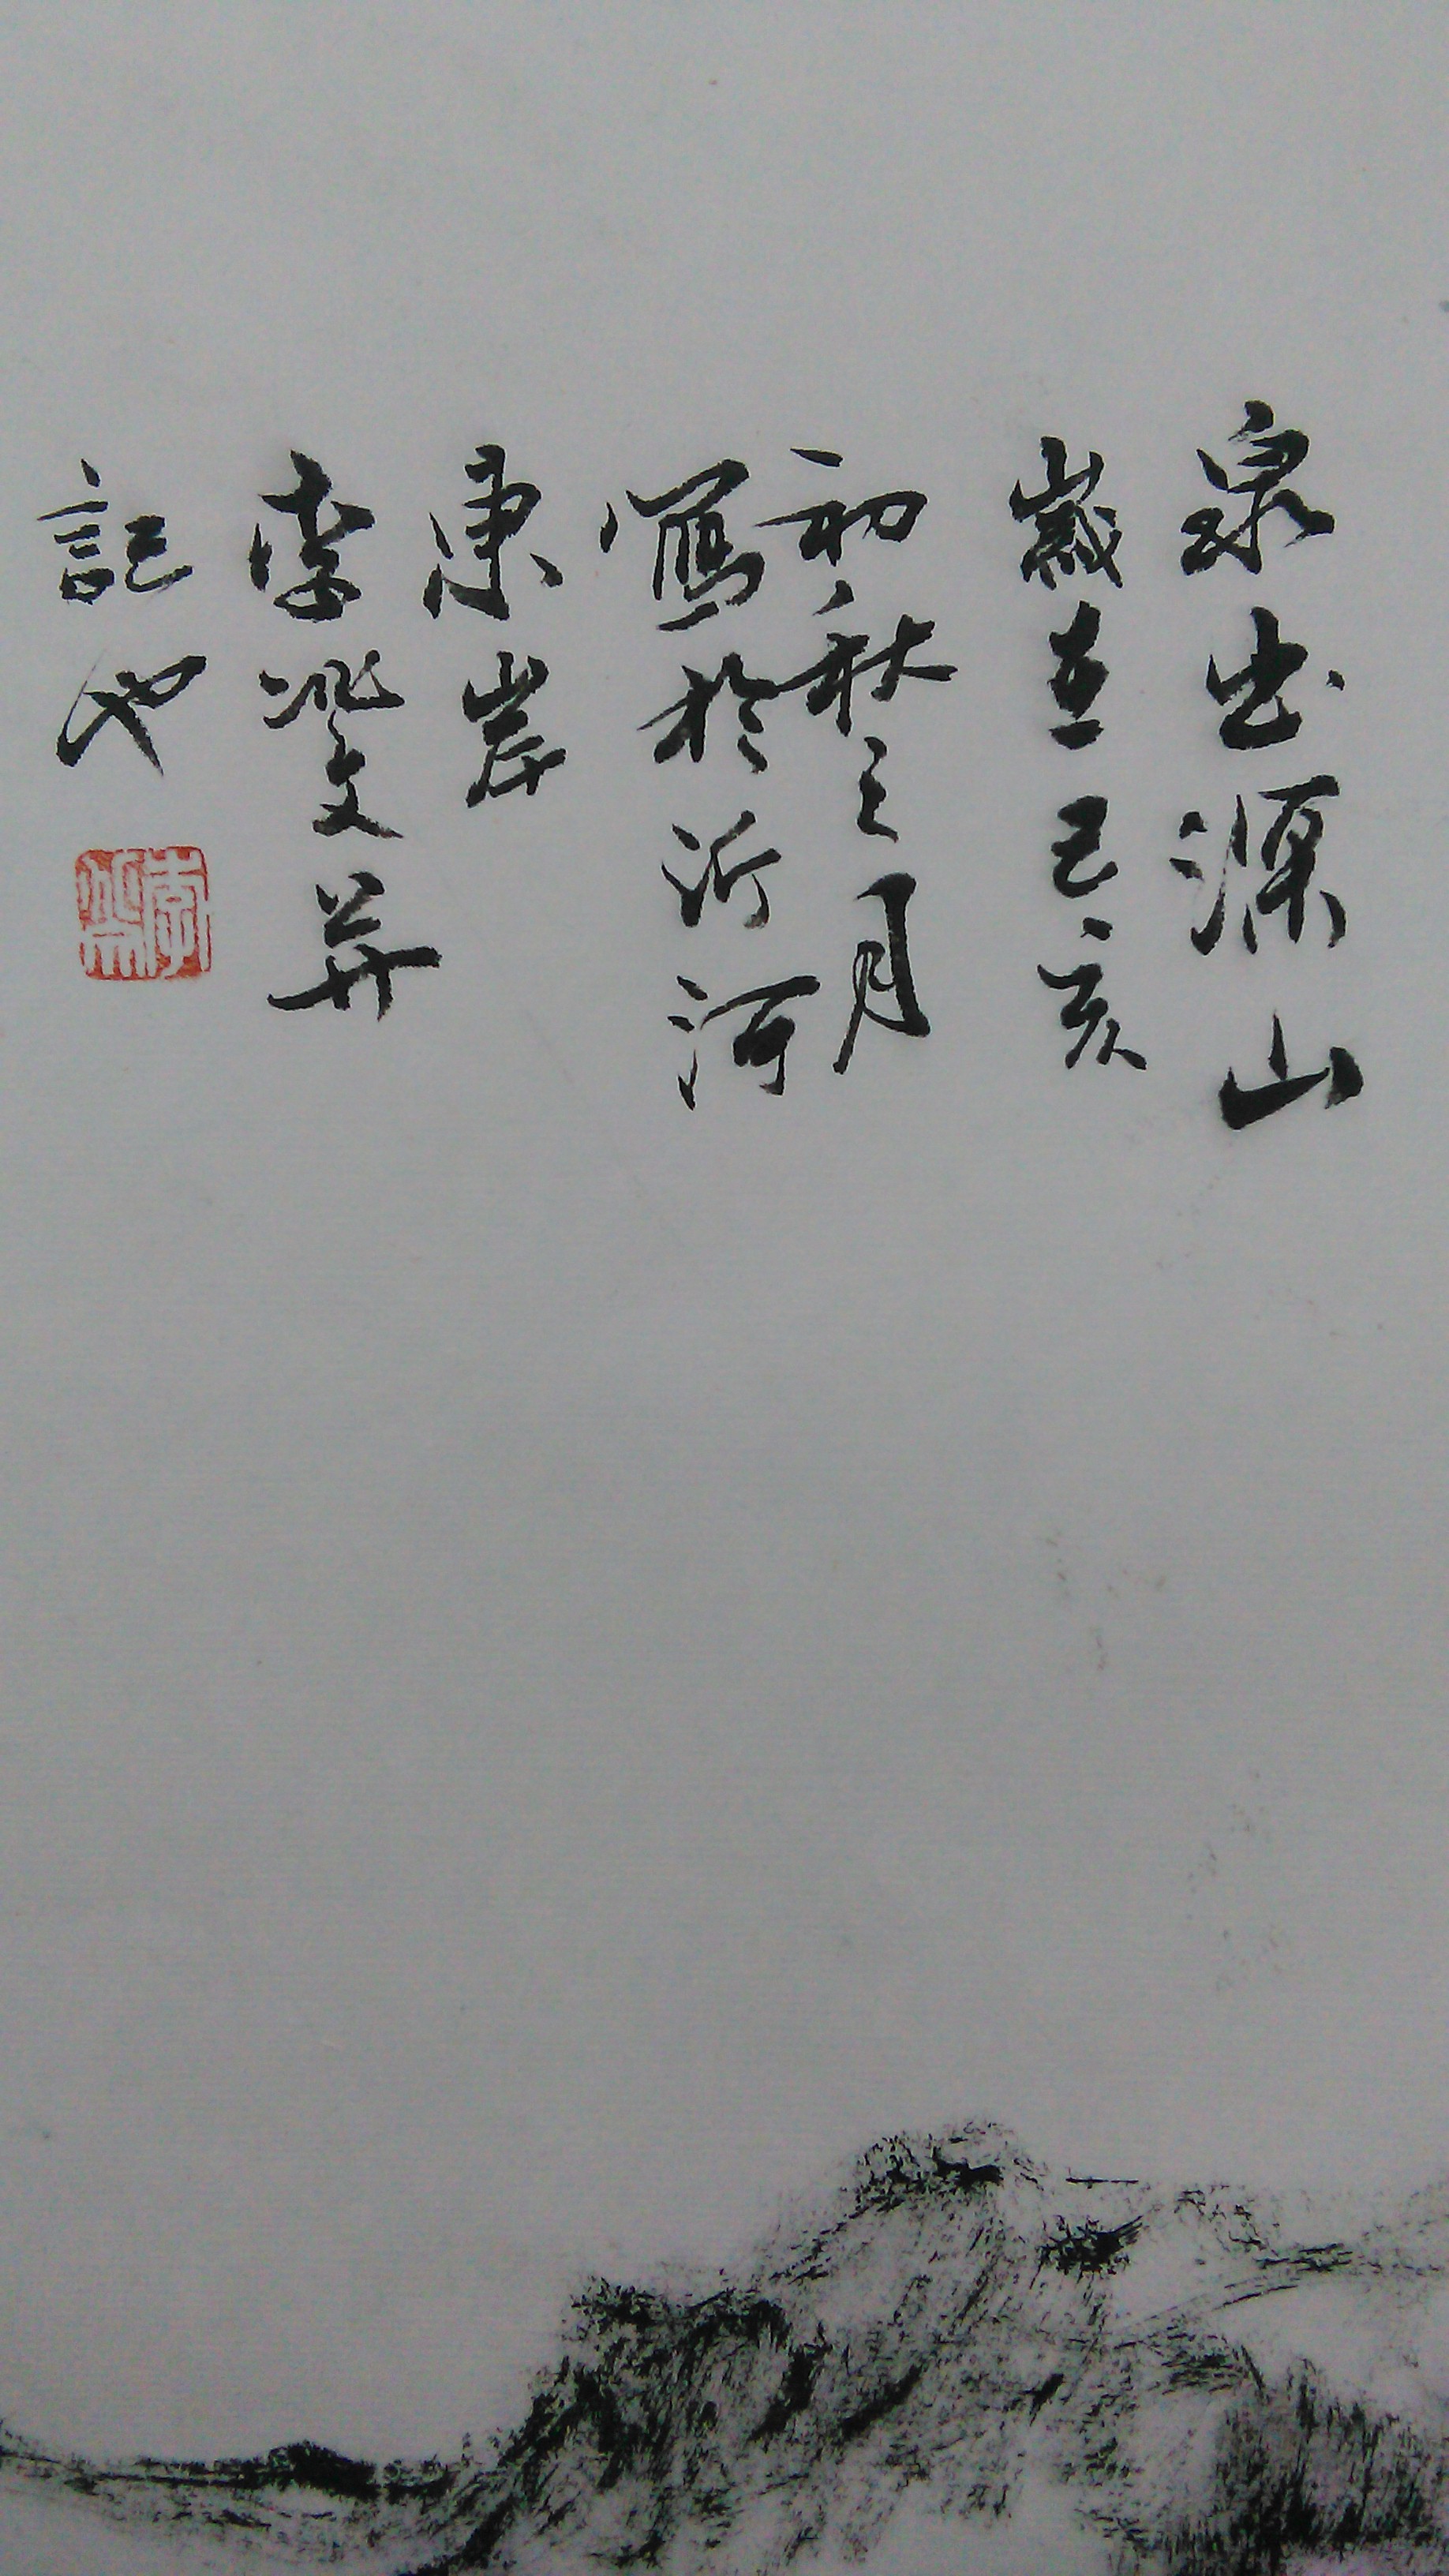 泉出源山
歲在己亥
初秋之月
寫於沂河
東岸
李 文并
記也